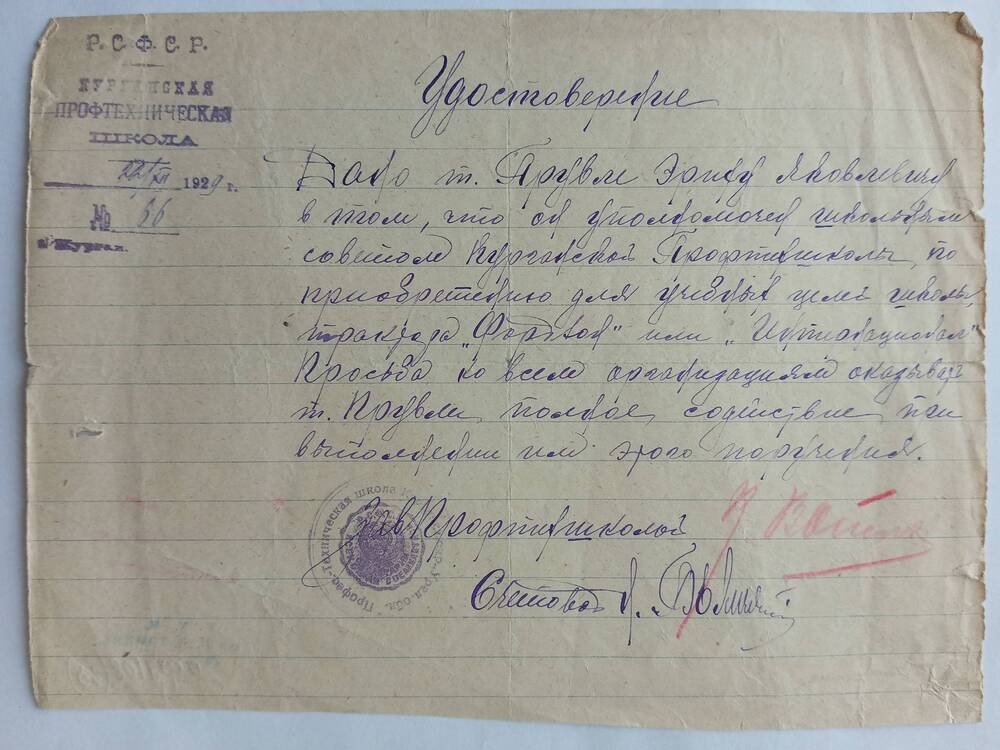 Р.С.Ф.С.Р.
КУРГАНСКАЯ
ПРОФТЕХНИЧЕСКАЯ
ШКОЛА
22/XI 1929 г.
№ 66
г. Курган.
Удостоверение
Дано т. Прувли Эрику Яковлевичу
в том, что он уполномочен школьным
советом Курганской Профтехшколы по
приобретению для учебных целей школы
трактора „Фордзон" или „Интернационал"
Просьба ко всем организациям оказывать
т. Прувли полное содействие при
выполнении им этого поручения.
Зав Профтехшколой
Счетовод
Профес.-Техническая школа
Урал. обл.